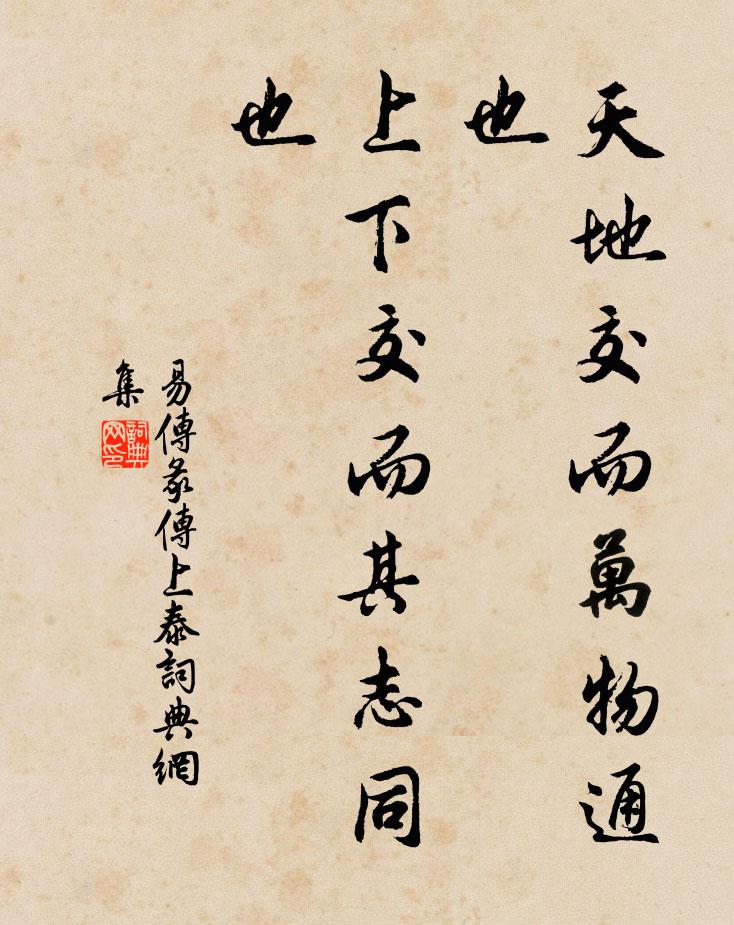 天地交而萬物通
也
上下交而其志同
也
易傳彖傳上泰詞典網
集
詞典
网印